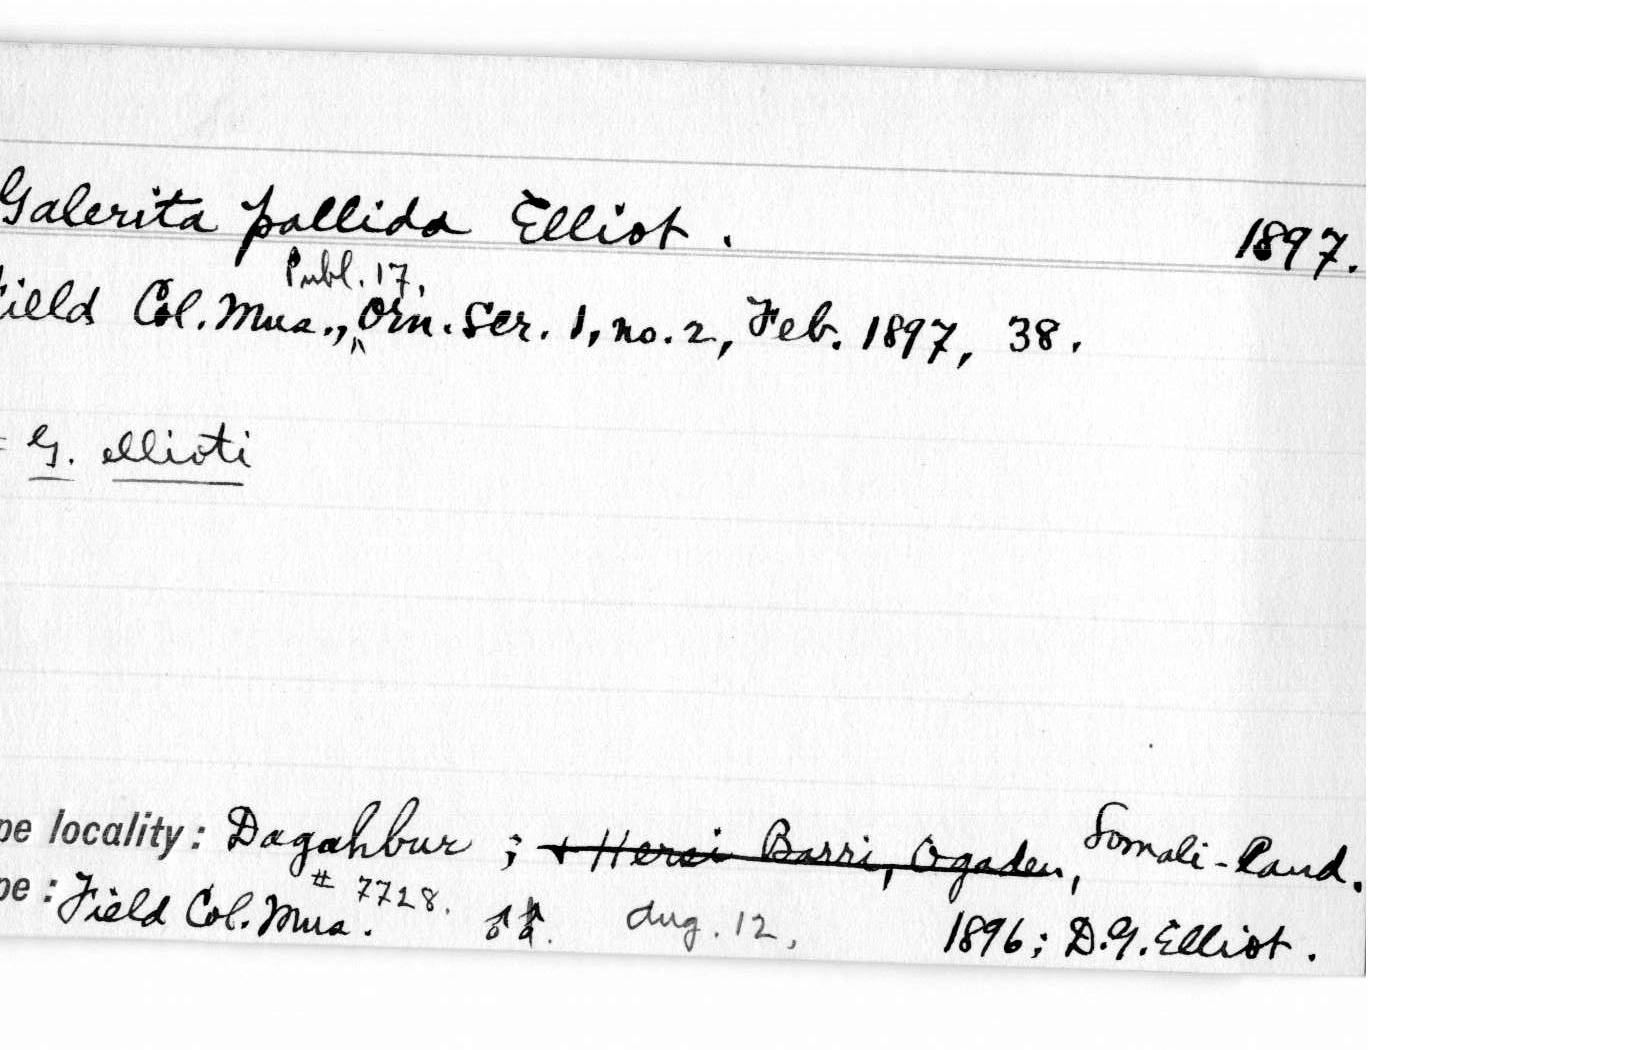 Galerita pallida Elliot. 1897.
Publ. 17,
ield Col. Mus., Orn. Ser. 1, no. 2, Feb. 1897, 38.
= G. ellioti
pe locality: Dagahbur ; + Hersi Barri, Ogaden, Somali-land.
# 7728.
pe: Field Col. Mus. ♂♂. Aug. 12, 1896; D.G. Elliot.